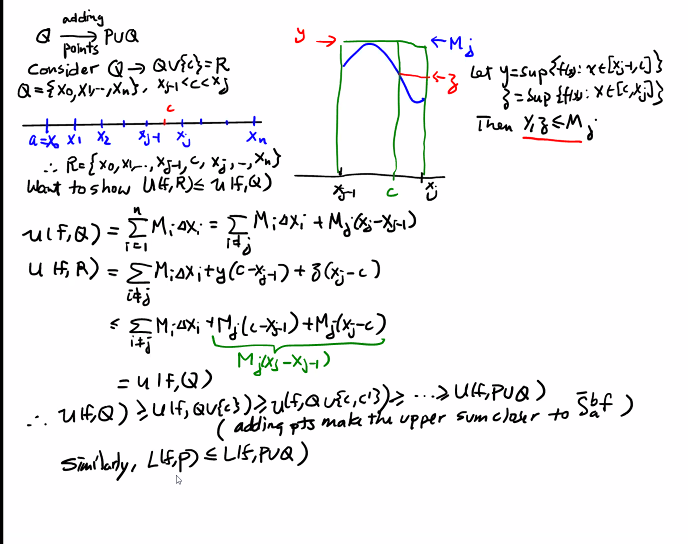 Q adding points → P∪Q
Consider Q → Q∪{c}=R
Q={x₀,x₁,…,xₙ}, xⱼ₋₁<c<xⱼ
c
a=x₀ x₁ x₂ xⱼ₋₁ xⱼ xₙ
∴ R={x₀,x₁,…,xⱼ₋₁,c,xⱼ,…,xₙ}
Want to show U(f,R)≤ U(f,Q)
y → ← Mⱼ
← z
xⱼ₋₁ c xⱼ
Let y=sup{f(x): x∈[xⱼ₋₁,c]}
z=sup{f(x): x∈[c,xⱼ]}
Then y,z≤Mⱼ.
U(f,Q) = Σᵢ₌₁ⁿ MᵢΔxᵢ = Σᵢ≠ⱼ MᵢΔxᵢ + Mⱼ(xⱼ-xⱼ₋₁)
U(f,R) = Σᵢ≠ⱼ MᵢΔxᵢ+y(c-xⱼ₋₁)+z(xⱼ-c)
≤ Σᵢ≠ⱼ MᵢΔxᵢ+Mⱼ(c-xⱼ₋₁)+Mⱼ(xⱼ-c)
Mⱼ(xⱼ-xⱼ₋₁)
= U(f,Q)
∴ U(f,Q) ≥ U(f,Q∪{c}) ≥ U(f,Q∪{c,c'}) ≥ … ≥ U(f,P∪Q)
(adding pts make the upper sum closer to ∫̄ₐᵇf)
Similarly, L(f,P) ≤ L(f,P∪Q)